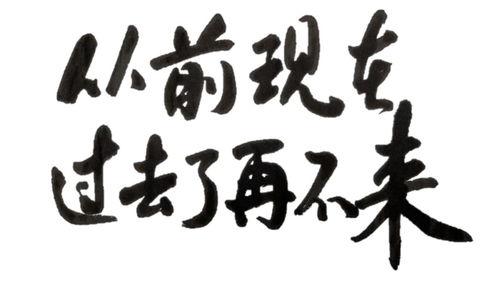 从前现在
过去了再不来